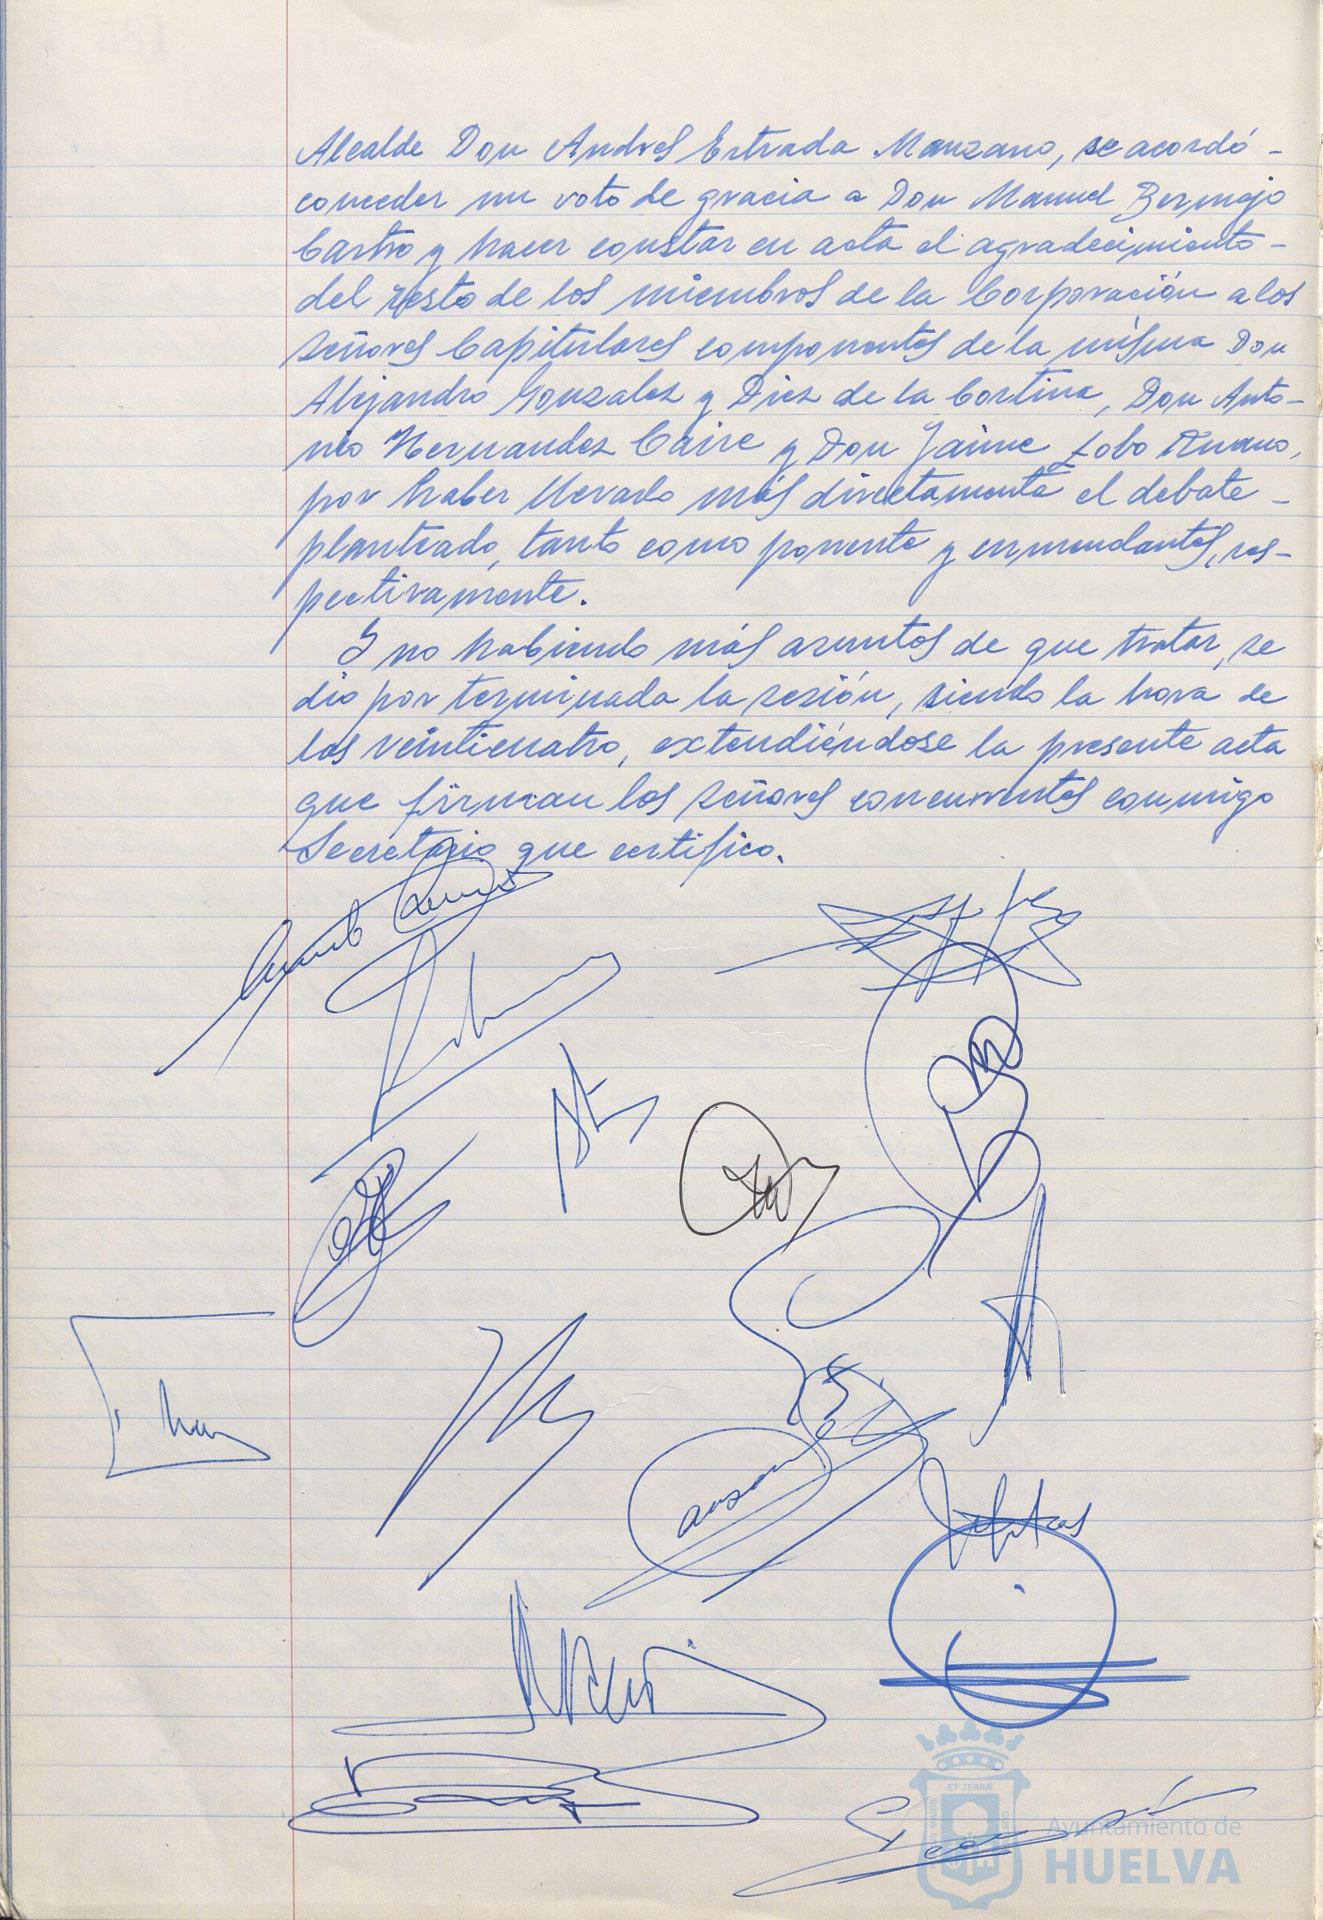 Alcalde Don Andres Estrada Manzano, se acordó -
conceder un voto de gracia a Don Manuel Bermejo
Castro y hacer constar en acta el agradecimiento -
del resto de los miembros de la Corporación a los
señores Capitulares componentes de la misma Don
Alejandro Gonzalez y Diez de la Cortina, Don Anto-
nio Hernandez Caire y Don Jaime Lobo
por haber llevado más directamente el debate -
planteado, tanto como ponente y enmendantes, res-
pectivamente.
Y no habiendo más asuntos de que tratar, se
dio por terminada la sesión, siendo la hora de
las veinticuatro, extendiéndose la presente acta
que firman los señores concurrentes conmigo
Secretario que certifico.
ET TERRÆ
Ayuntamiento de
HUELVA